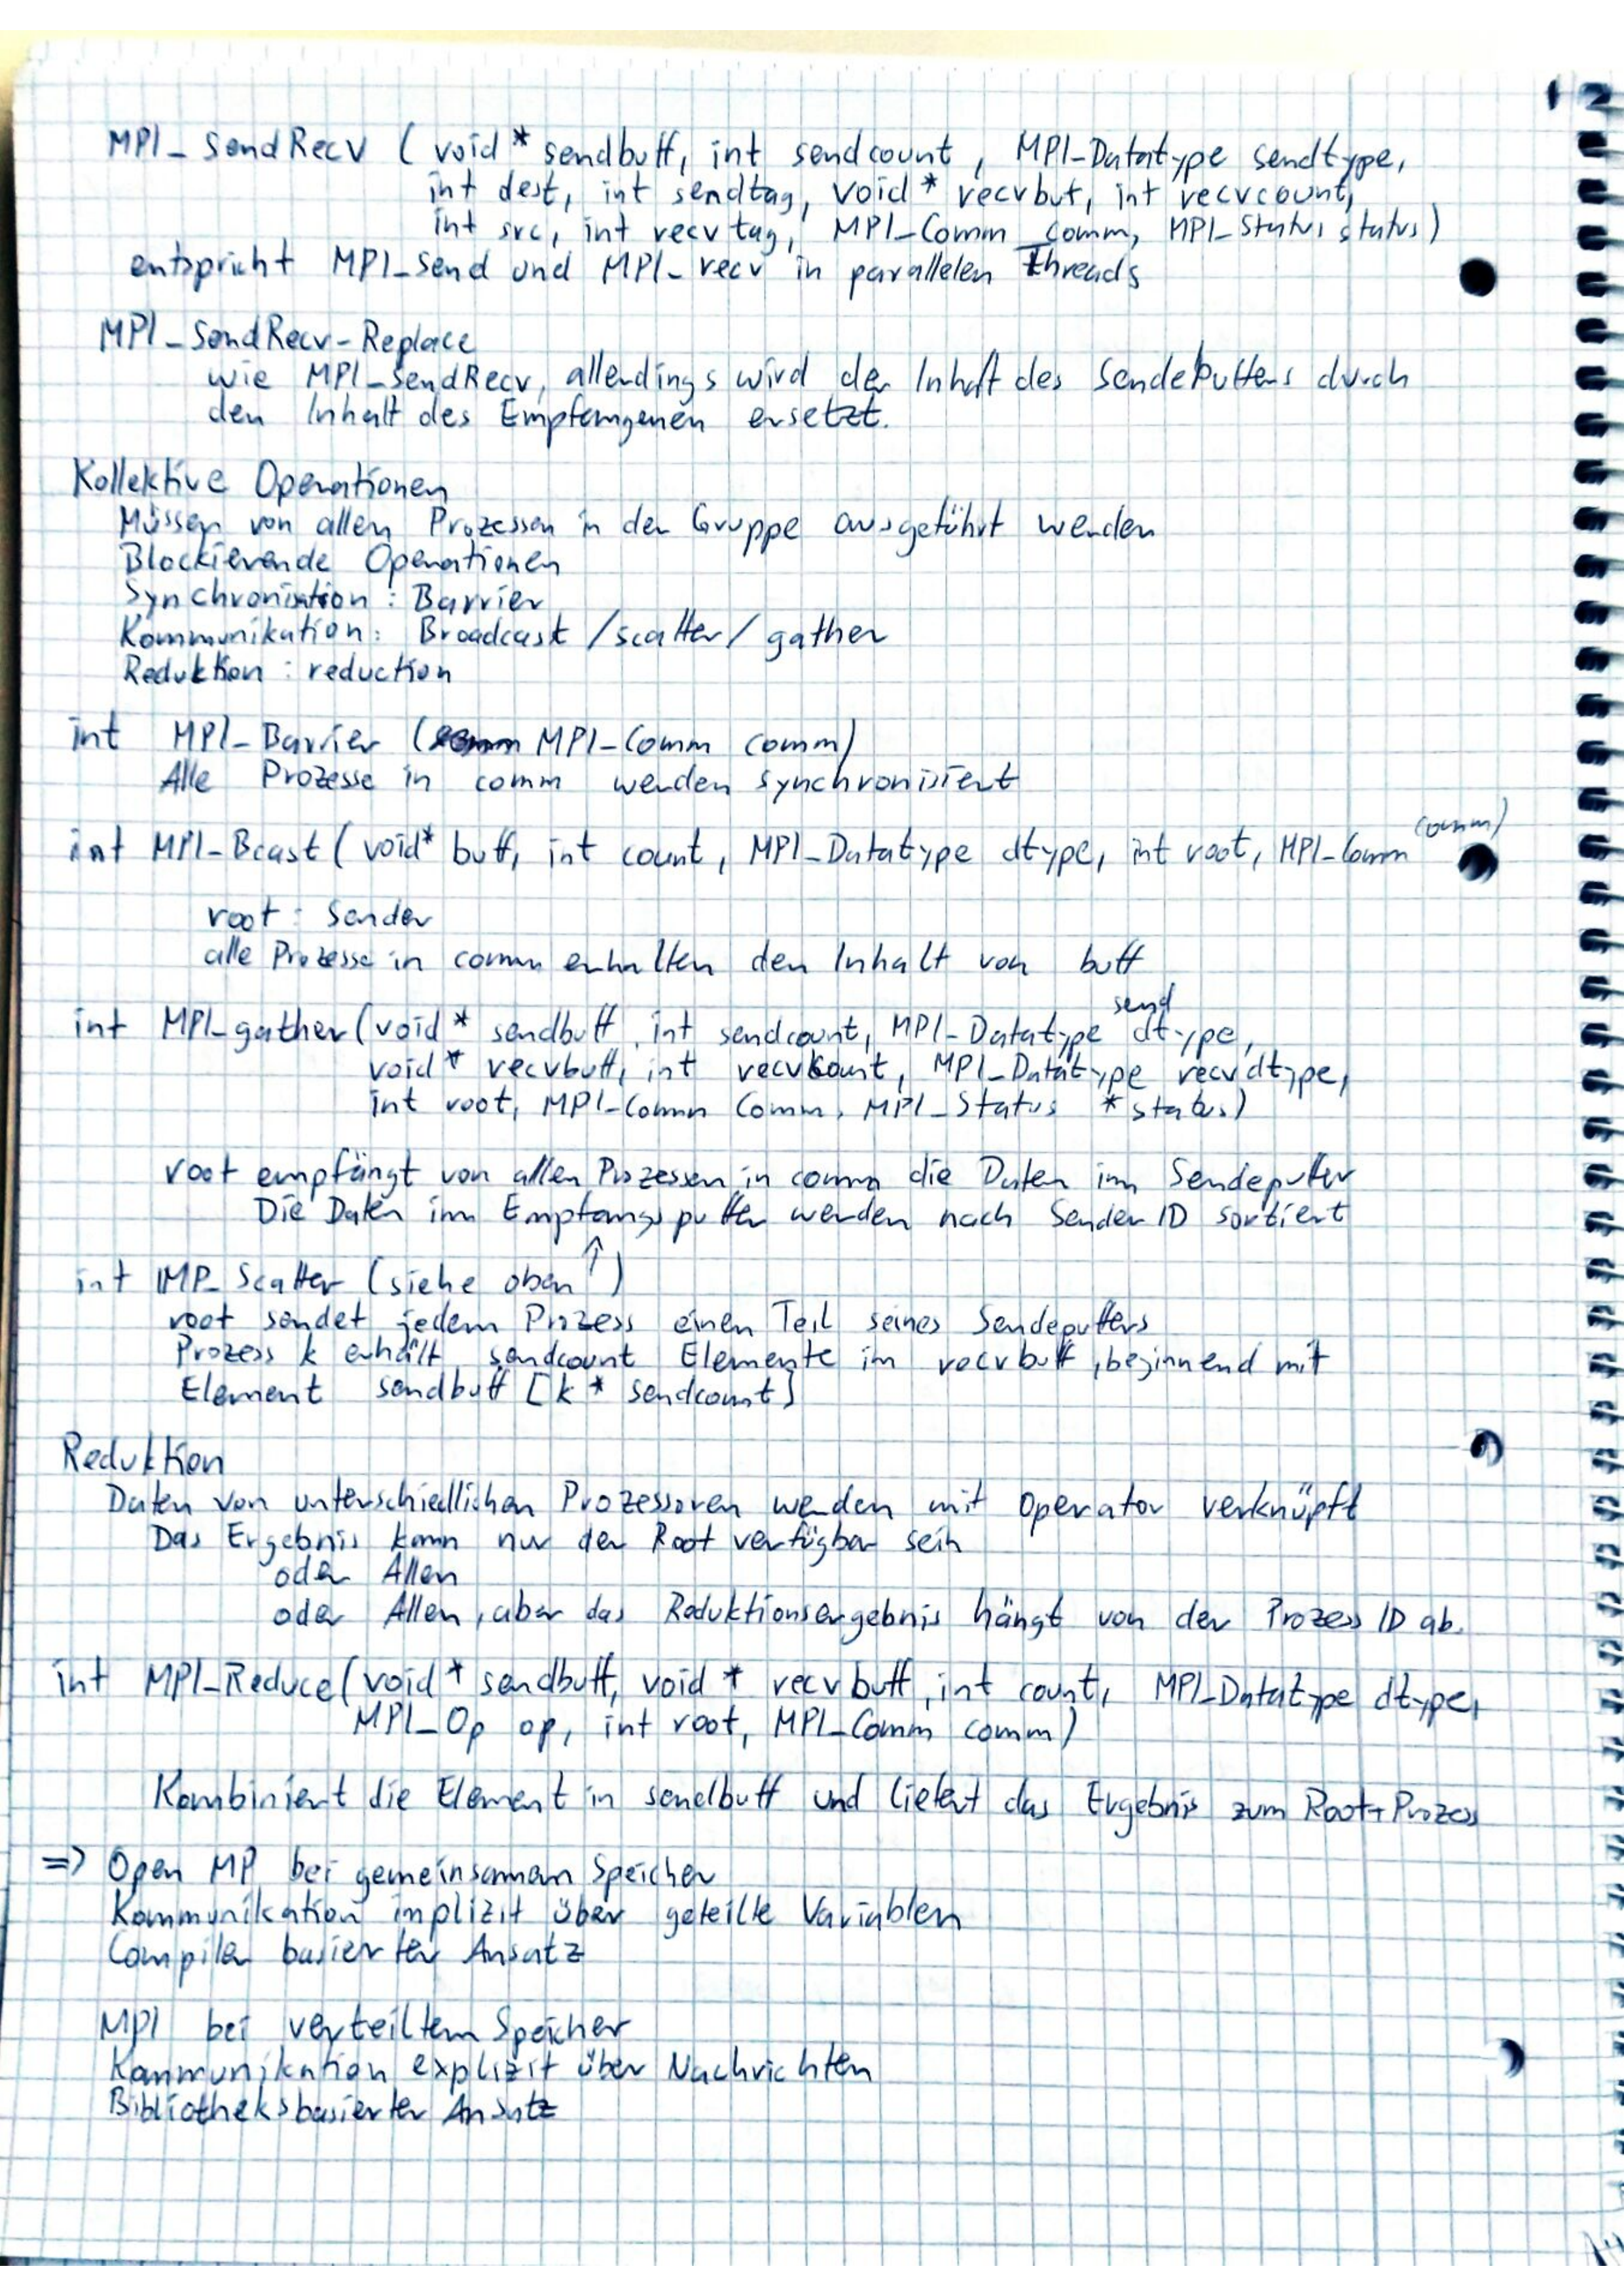 12
MPI_SendRecv (void* sendbuff, int sendcount, MPI_Datatype sendtype,
int dest, int sendtag, void* recvbuf, int recvcount,
int src, int recvtag, MPI_Comm comm, MPI_Status status)
entspricht MPI_Send und MPI_recv in parallelen Threads
MPI_SendRecv_Replace
wie MPI_SendRecv, allerdings wird der Inhalt des Sendeputters durch
den Inhalt des Empfangenen ersetzt.
Kollektive Operationen
Müssen von allen Prozessen in der Gruppe ausgeführt werden
Blockierende Operationen
Synchronisation: Barrier
Kommunikation: Broadcast / scatter / gather
Reduktion: reduction
int MPI_Barrier (MPI_Comm comm)
Alle Prozesse in comm werden synchronisiert
int MPI_Bcast (void* buff, int count, MPI_Datatype dtype, int root, MPI_Comm comm)
root: Sender
alle Prozesse in comm erhalten den Inhalt von buff
int MPI_gather (void* sendbuff, int sendcount, MPI_Datatype send dtype,
void* recvbuff, int recvcount, MPI_Datatype recvdtype,
int root, MPI_Comm Comm, MPI_Status *status)
root empfängt von allen Prozessen in comm die Daten im Sendeputter
Die Daten im Empfangsputter werden nach Sender ID sortiert
int MP_Scatter (siehe oben ↑)
root sendet jedem Prozess einen Teil seines Sendeputters
Prozess k erhält sendcount Elemente im recvbuff, beginnend mit
Element sendbuff [k * sendcount]
Reduktion
Daten von unterschiedlichen Prozessoren werden mit Operator verknüpft
Das Ergebnis kann nur der Root verfügbar sein
oder Allen
oder Allen, aber das Reduktionsergebnis hängt von der Prozess ID ab.
int MPI_Reduce (void* sendbuff, void* recvbuff, int count, MPI_Datatype dtype,
MPI_Op op, int root, MPI_Comm comm)
Kombiniert die Element in sendbuff und liefert das Ergebnis zum Root-Prozess
=> Open MP bei gemeinsamem Speicher
Kommunikation implizit über geteilte Variablen
Compiler basierter Ansatz
MPI bei verteiltem Speicher
Kommunikation explizit über Nachrichten
Bibliotheksbasierter Ansatz